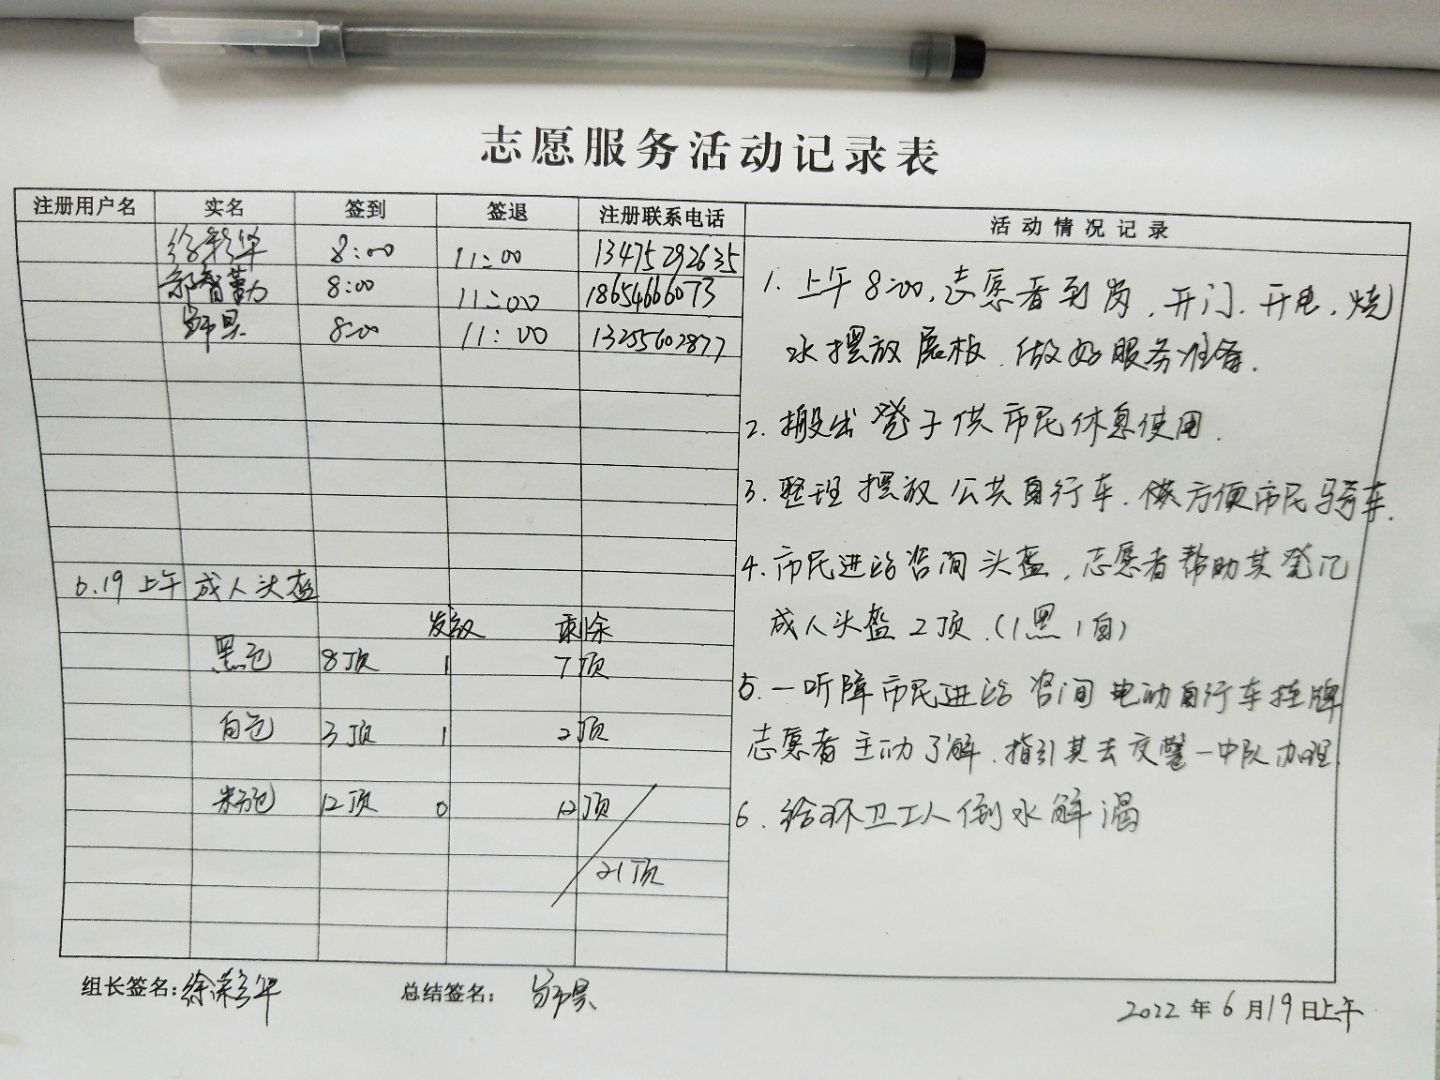 志愿服务活动记录表
注册用户名 实名 签到 签退 注册联系电话 活动情况记录
8:00 11:00 13475292635
8:00 11:00 18654666073
8:00 11:00 13255602877
1. 上午8:00,志愿者到岗,开门、开电,烧
水摆放展板,做好服务准备.
2. 搬出凳子供市民休息使用.
3. 整理摆放公共自行车.方便市民骑车.
4. 市民进站咨询头盔,志愿者帮助其登记
成人头盔2顶.(1黑1白)
5. 一听障市民进站咨询电动自行车挂牌
志愿者主动了解.指引其去交警一中队办理.
6. 给环卫工人倒水解渴
6.19上午 成人头盔
发放 剩余
黑色 8顶 1 7顶
白色 3顶 1 2顶
粉色 12顶 0 12顶
21顶
组长签名: 总结签名:
2022年6月19日上午